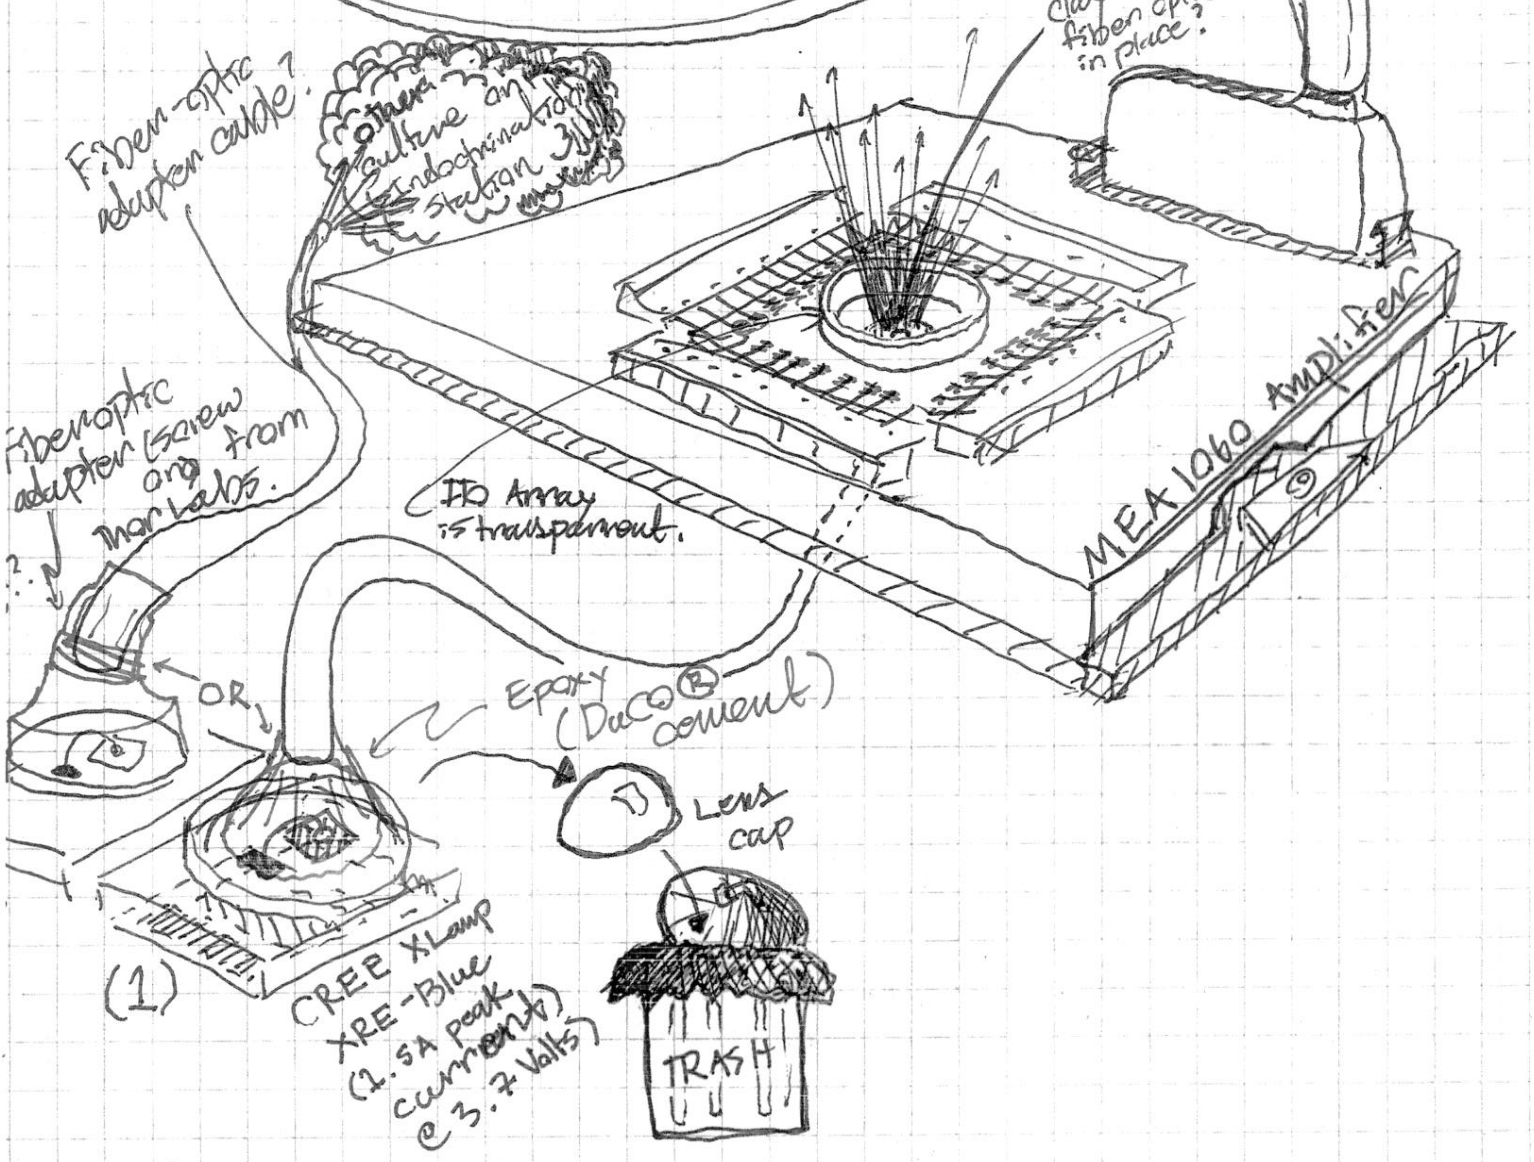 fiber op
in place?
Fiber-optic
adapter cable?
other
culture and
indoctrination
station
Fiberoptic
adapter (screw
on) from
Thor Labs.
ITO Array
is transparent.
MEA 1060 Amplifier
OR
Epoxy
(DuCO®
cement)
Lens
cap
TRASH
(1)
CREE XLamp
XRE-Blue
(1.5A peak
current)
@ 3.7 Volts)